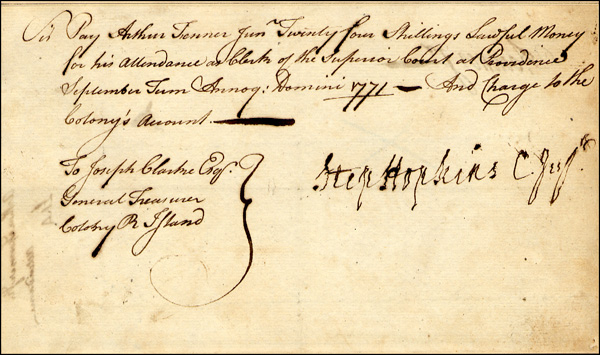 Sir Pay Arthur Fenner Junr. Twenty four Shillings Lawful Money
for his Attendance as Clerk of the Superior Court at Providence
September Term Annoq: Domini 1771 — And Charge to the
Colony's Account
To Joseph Clarke Esqr.
General Treasurer
Colony R Island
Step Hopkins C. Jusr.